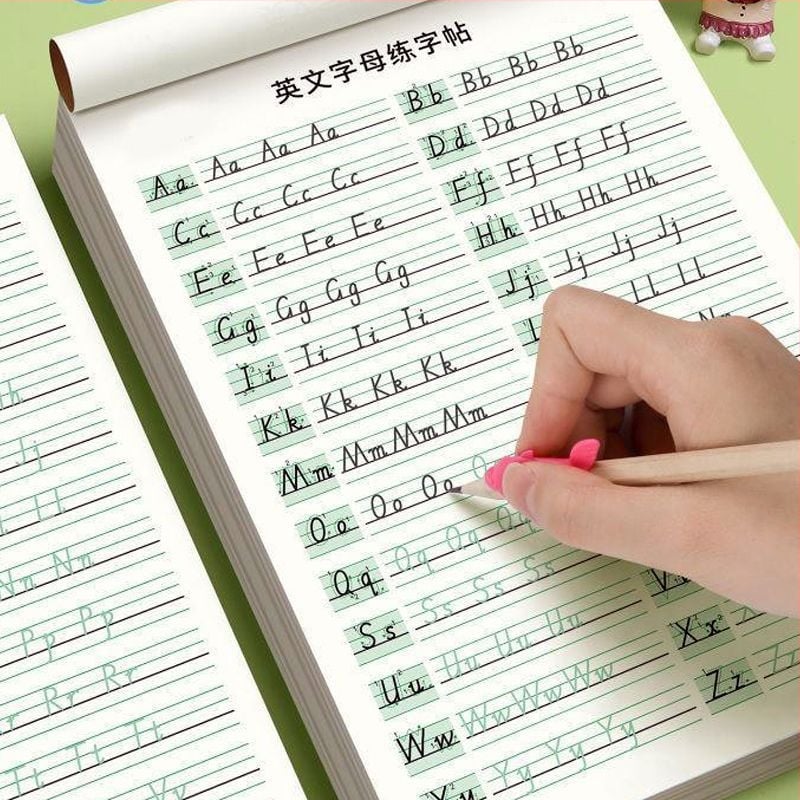 英文字母练字帖
Aa Aa Aa Aa
Bb Bb Bb Bb
Cc Cc Cc Cc
Dd Dd Dd Dd
Ee Ee Ee Ee
Ff Ff Ff Ff
Gg Gg Gg Gg
Hh Hh Hh Hh
Ii Ii Ii Ii
Jj Jj Jj Jj
Kk Kk Kk Kk
Ll Ll
Mm Mm Mm Mm
Nn
Oo Oo Oo
Qq Qq Qq
Ss Ss Ss Ss
Uu Uu Uu Uu
Xx
Ww Ww Ww Ww
Zz
Yy Yy Yy Yy
Jj
Ll
Nn Nn
Pp Pp
Rr Rr
Tt Tt Tt
Vv